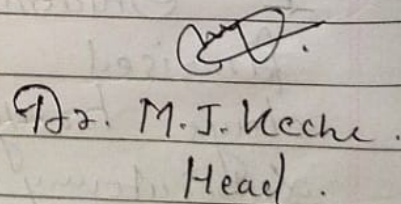 Dr. M. J. Keche.
Head.